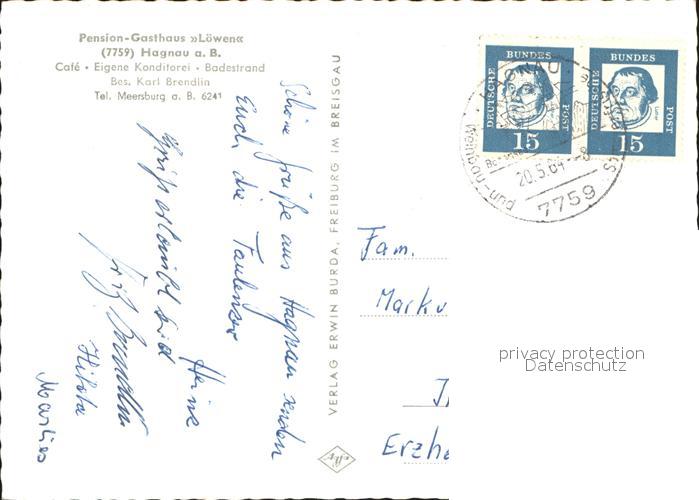 Pension-Gasthaus »Löwen«
(7759) Hagnau a. B.
Café · Eigene Konditorei · Badestrand
Bes. Karl Brendlin
Tel. Meersburg a. B. 6241
Schöne Grüße aus Hagnau senden
Euch die Faulenzer
Heine
Hilda
Marlies
VERLAG ERWIN BURDA, FREIBURG IM BREISGAU
DEUTSCHE BUNDES POST
15
DEUTSCHE BUNDES POST
15
Weinbau- und
20.5.64 - 8
7759
Fam.
Marku
Erzh
privacy protection
Datenschutz